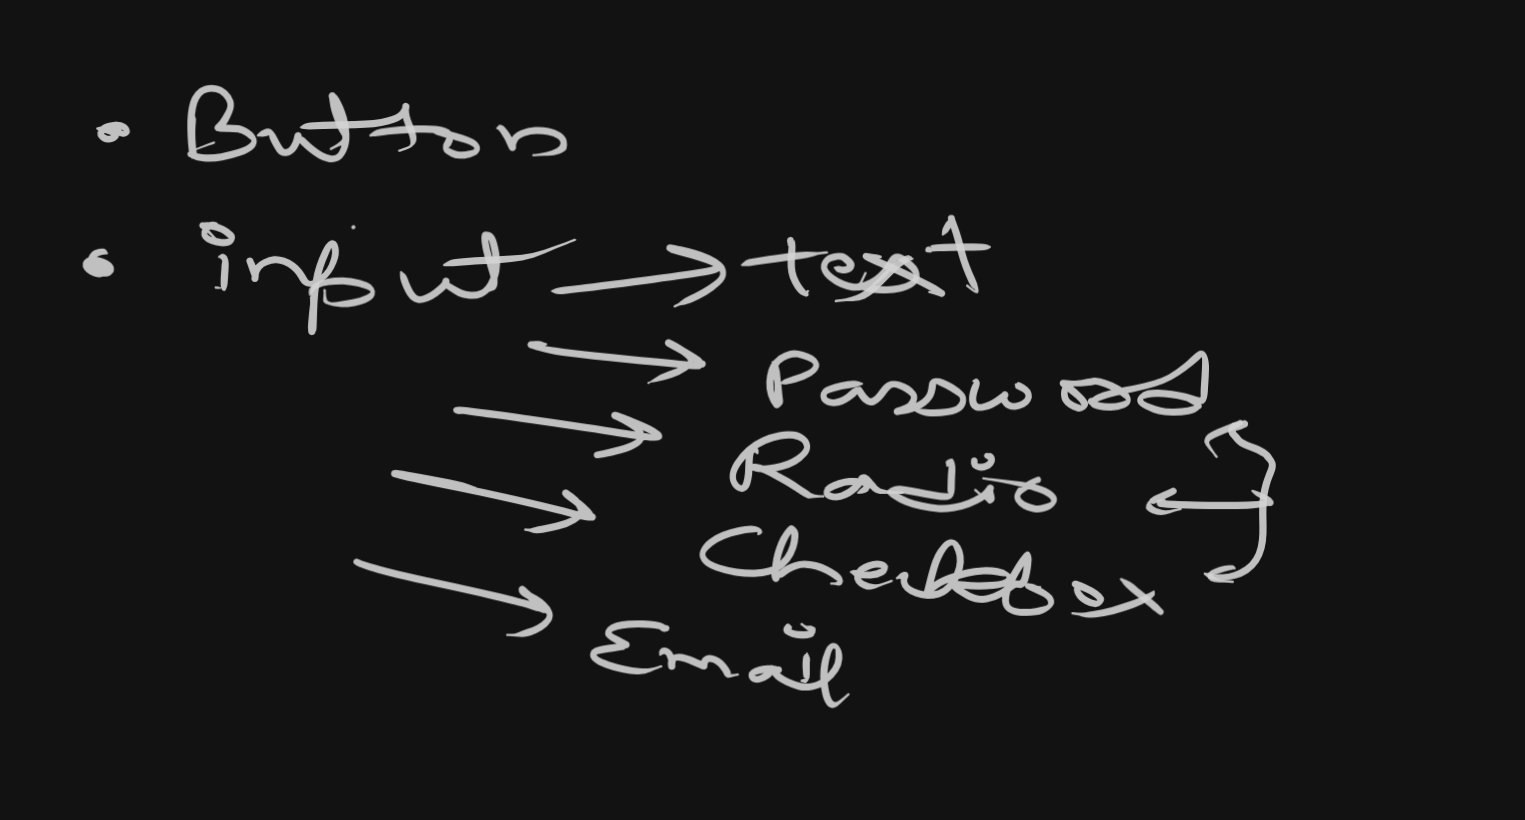 • Button
• input → text
→ Password
→ Radio
→ Checkbox
→ Email